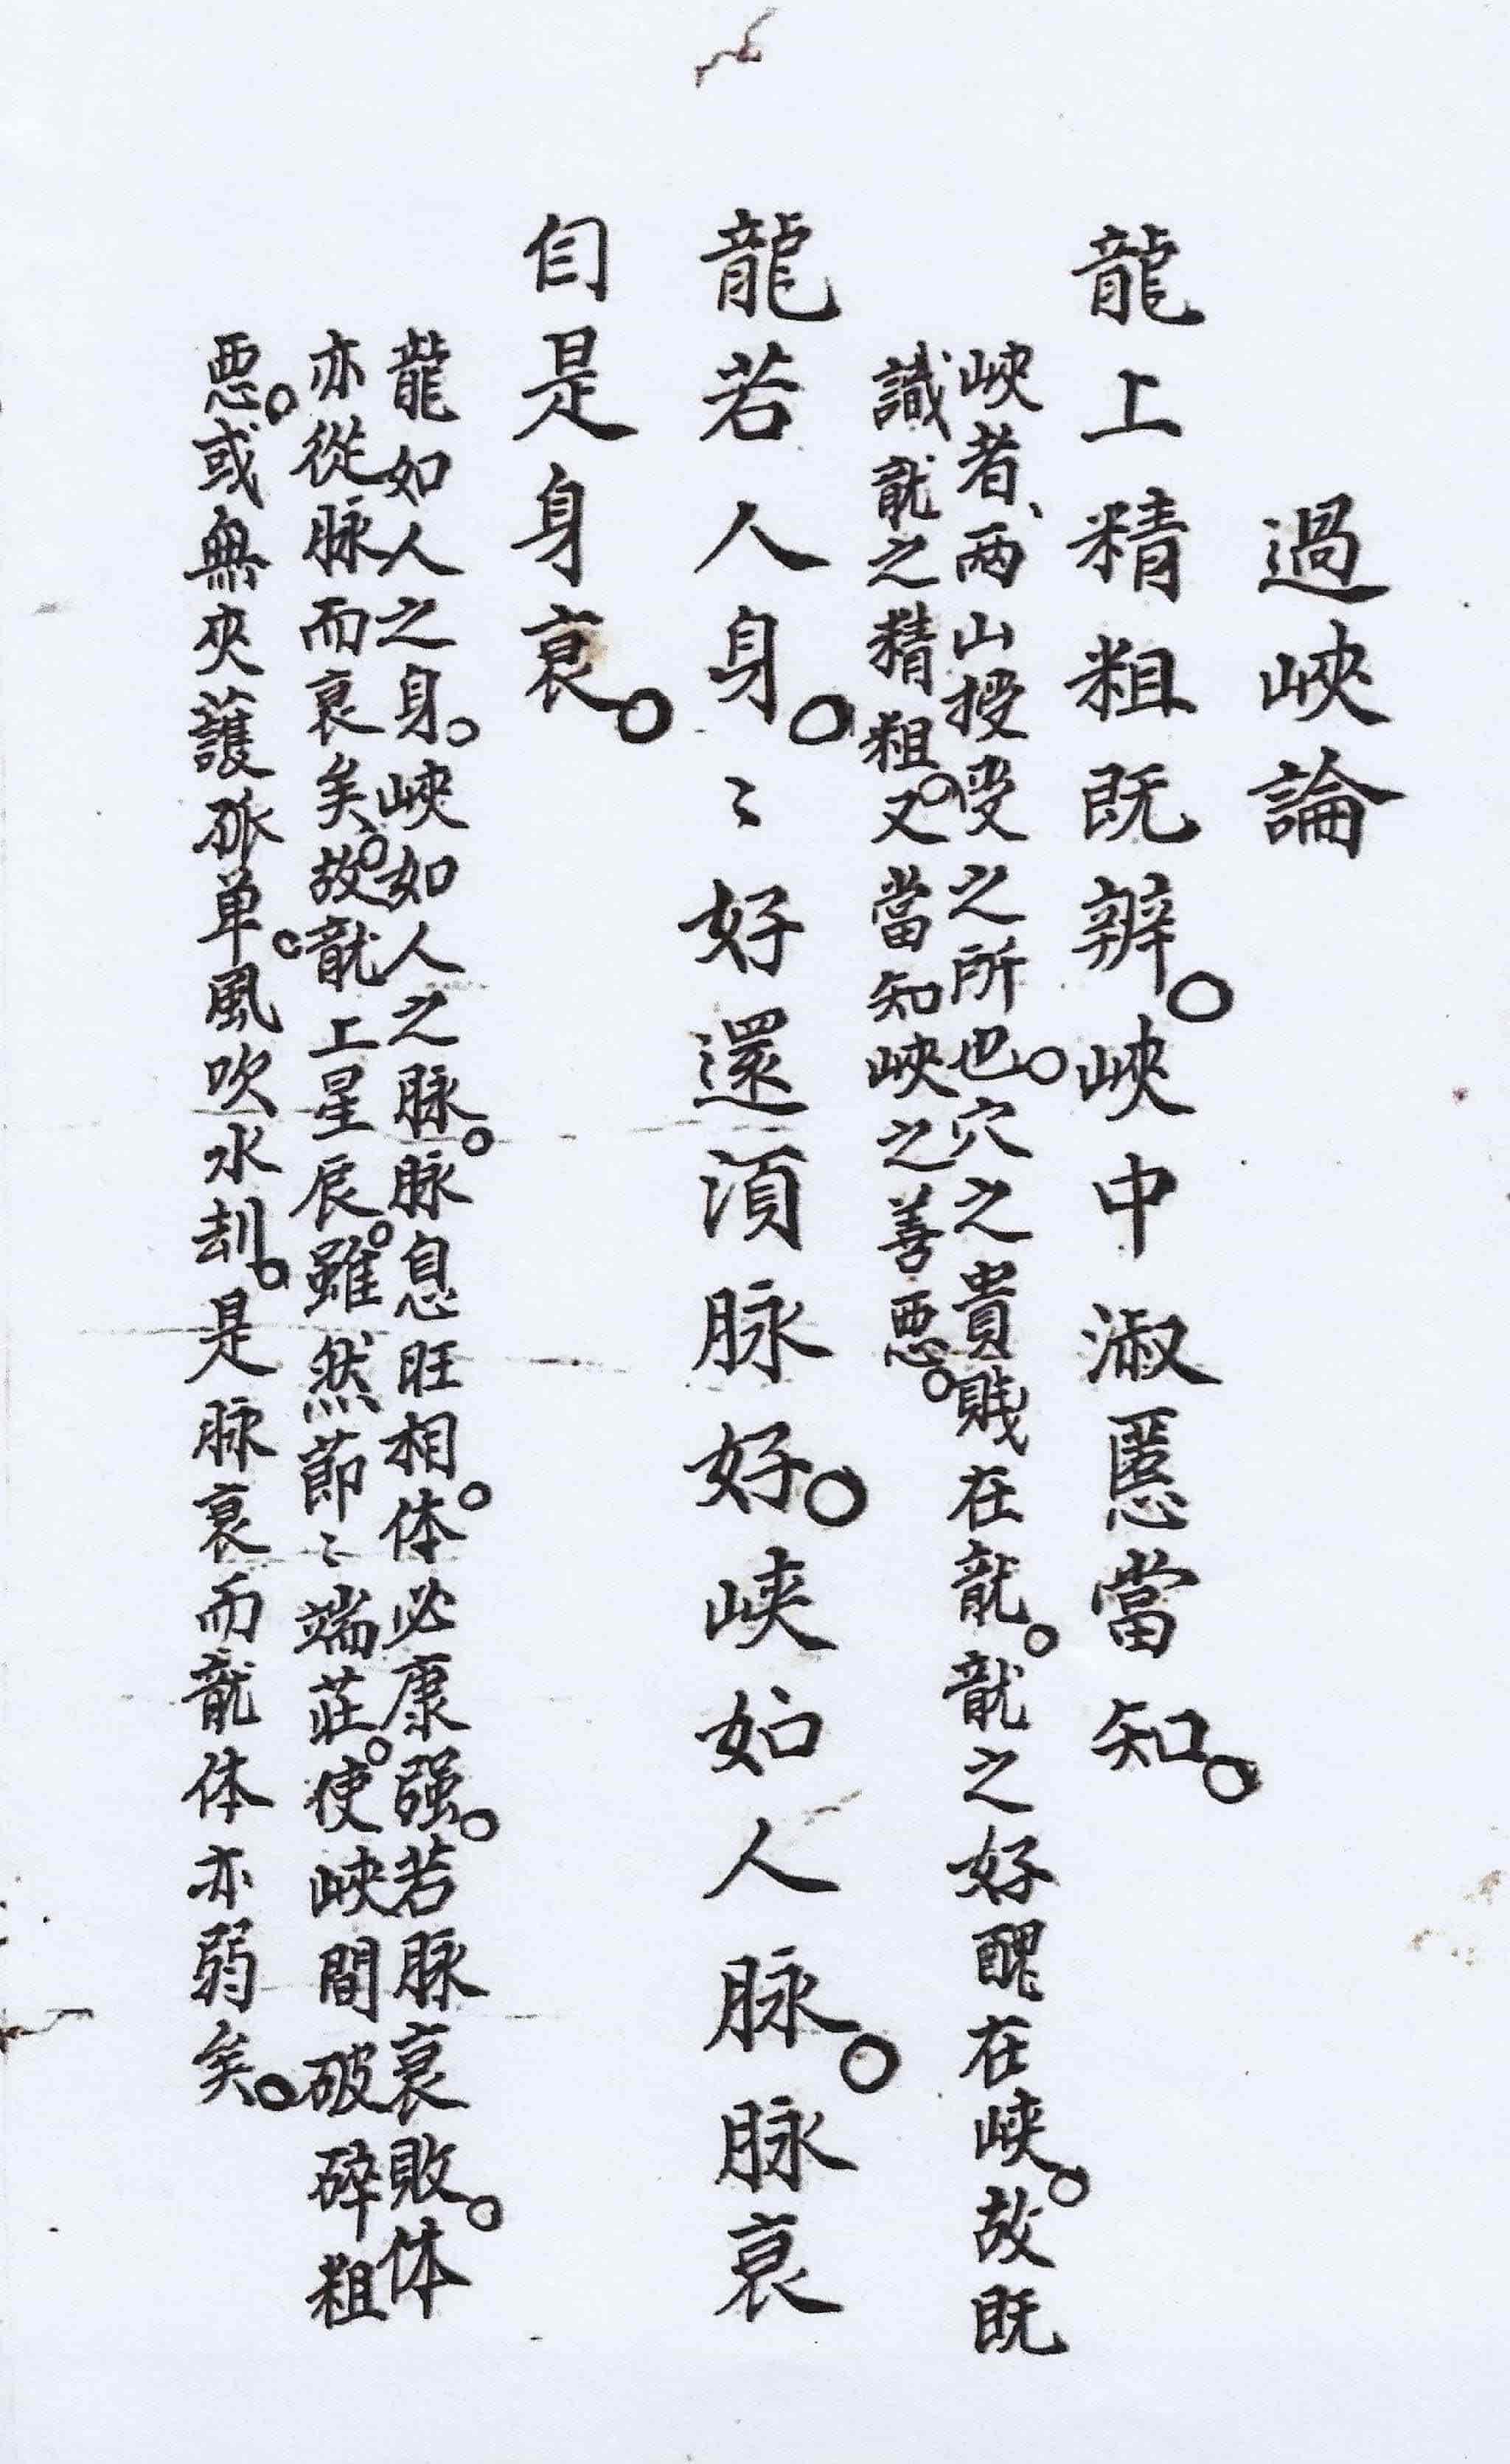 過峽論
龍上精粗既辨。峽中淑慝當知。
峽者、两山授受之所也。穴之貴賤在龍。龍之好醜在峽。故既
識龍之精粗。又當知峽之善悪。
龍若人身。〻好還須脉好。峡如人脉。脉衰
自是身衰。
龍如人之身。峽如人之脉。脉息旺相。体必康强。若脉衰敗。体
亦從脉而衰矣。故龍上星辰。雖然節〻端莊。使峽間破碎粗
悪。或無夾護孤单。風吹水刦。是脉衰而龍体亦弱矣。